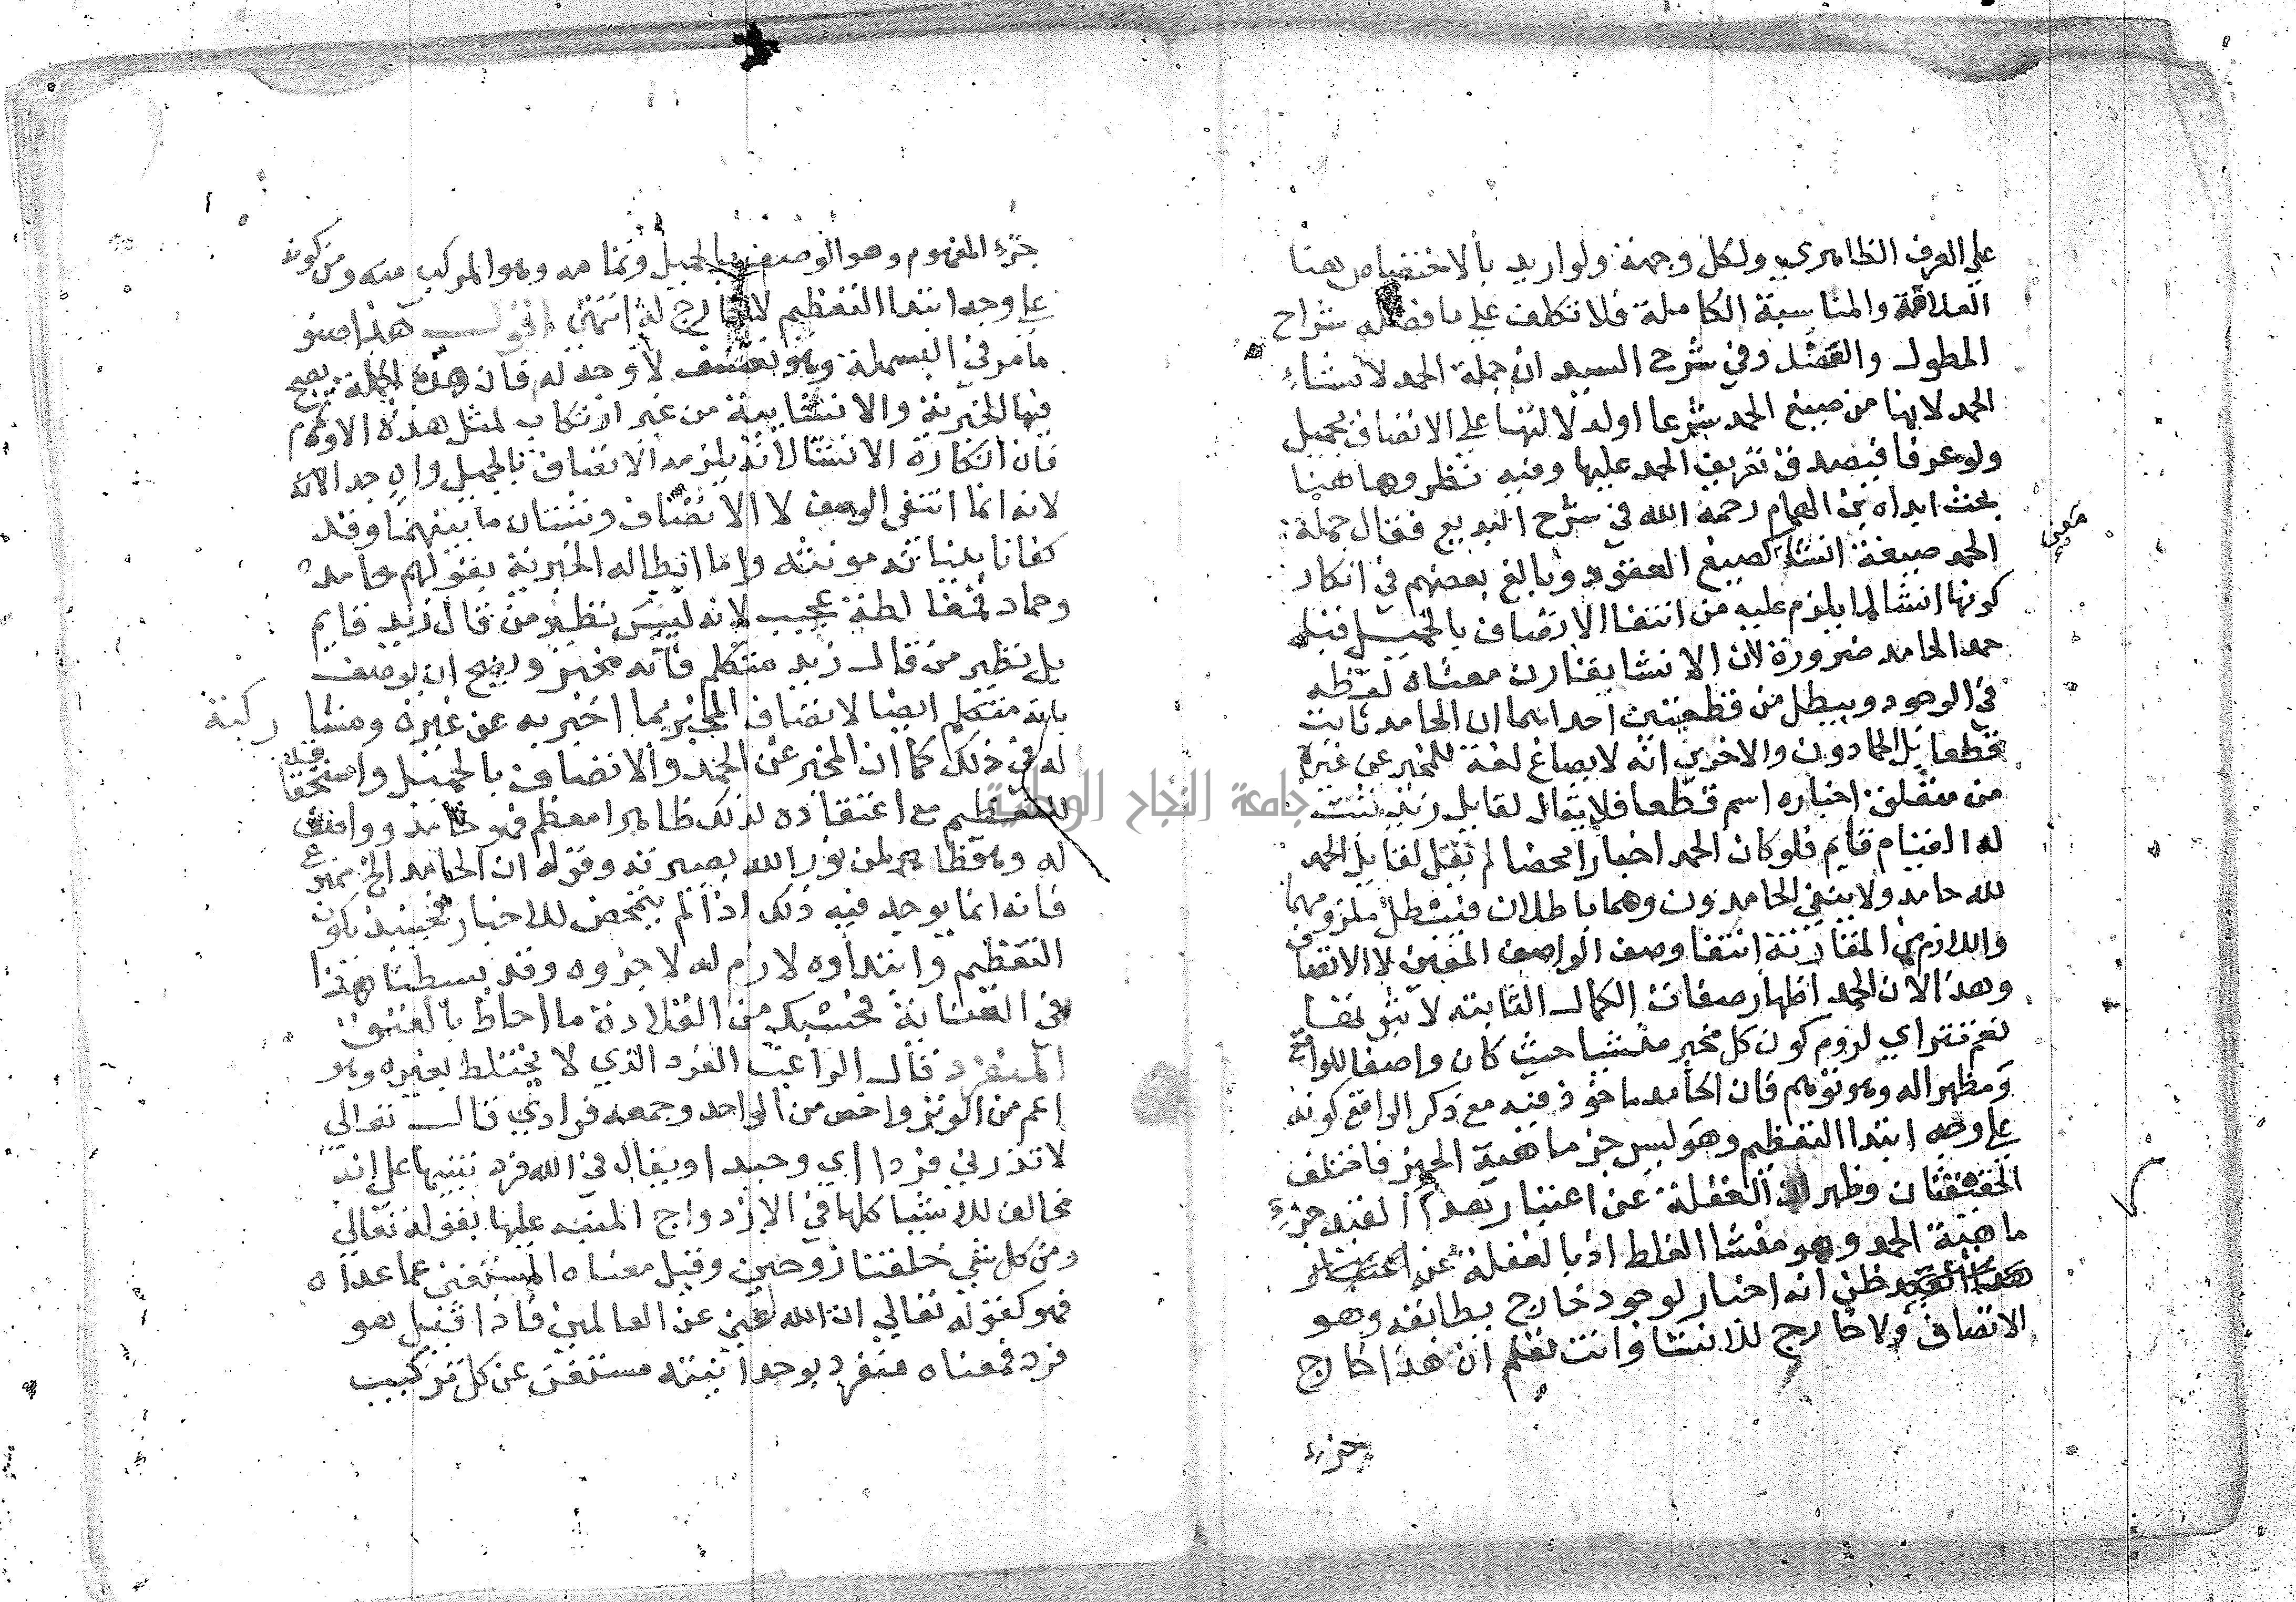 علي العرف الظاهري ولكل وجهة ولو اريد بالاختصاص هنا
العلاقة والمناسبة الكاملة فلا تكلف علي ما فصله شراح
المطول والفضل وفي شرح السيد ان جملة الحمد لانشاء
الحمد لانها من صيغ الحمد شرعا اولدلالتها علي الاتصاف بجميل
ولو عرفا فيصدق تعريف الحمد عليها وفيه نظر وهاهنا
بحث ابداه بن الهمام رحمه الله في شرح البديع فقال جملة
الحمد صيغة انشا كصيغ العقود وبالغ بعضهم في انكار
كونها انشا لما يلزم عليه من انتفا الاتصاف بالجميل قبل
حمد الحامد ضرورة لان الانشا يقارن معناه لفظه
في الوجود ويبطل من قطعيتين احداهما ان الحامد ثابت
قطعا بل الحمادون والاخري انه لا يصاغ لغة للمخبر عن غيره
من متعلق اخباره اسم قطعا فلا يقال لقايل زيد ثبت
له القيام قايم فلو كان الحمد اخبارا محضا لم يقل لقايل الحمد
لله حامد ولا ينفي الحامدون وهما باطلان فيبطل ملزومهما
واللازم من المقارنة انتفا وصف الواصف المعين لا الاتصاف
وهذا لان الحمد اظهار صفات الكمال الثابتة لا ثبوتها
نعم تتراي لزوم كون كل مخبر منشيا حيث كان واصفا للواقع
ومظهرا له وهو توهم فان الحامد ماخوذ فيه مع ذكر الواقع كونه
علي وجه ابتدا التعظيم وهو ليس جز ماهية الخبر فاختلف
الحقيقتان وظهر ان الغفلة عن اعتبار هذا القيد جزء
ماهية الحمد وهو منشا الغلط اذ بالغفلة عن اعتبار
هذا القيد ظن انه اخبار لوجود خارج يطابقه وهو
الاتصاف ولا خارج للانشا وانت تعلم ان هذا خارج
جزء
معني
جزء المفهوم وهو الوصف بالجميل وتمامه وهو المركب منه ومن كونه
علي وجه ابتدا التعظيم لا خارج له انتهي اقول هذا صنو
ما مر في البسملة وهو تعسف لا وجه له فان هذه الجملة يصح
فيها الخبرية والانشايية من غير ارتكاب لمثل هذه الاوهام
فان انكاره الانشا لانه يلزمه الاتصاف بالجميل واه جدا لانه
لانه انما انتفي الوصف لا الاتصاف وشتان ما بينهما وقد
كفانا بديانته مونته واما ابطاله الخبرية بقولهم حامد
وحماد فمغالطة عجيب لانه ليس نظير من قال زيد قايم
بل نظير من قال زيد متكلم فانه مخبر ويصح ان يوصف
بانه متكلم ايضا لاتصاف المخبر بما اخبر به عن غيره ومنشا ركته
له في ذلك كما ان المخبر عن الحمد والاتصاف بالجميل واستحقاقه
للتعظيم مع اعتقاده لذلك ظاهرا معظم فهو حامد وواصف
له وهو ظاهر لمن نور الله بصيرته وقوله ان الحامد الخ ممنوع
فانه انما يوجد فيه ذلك اذا لم يتمحض للاخبار فحينيذ يكون
التعظيم وابتداوه لازم له لا جزوه وقد بسطنا هذا
في العناية فحسبك من القلادة ما احاط بالعنق
المنفرد قال الراغب الفرد الذي لا يختلط بغيره وهو
اعم من الوتر واخص من الواحد وجمعه فرادي قال تعالي
لا تذرني فردا اي وحيدا ويقال في الله فرد تنبيها علي انه
مخالف للاشيا كلها في الازدواج المنبه عليها بقوله تعالي
ومن كل شي خلقنا زوجين وقيل معناه المستغني عما عداه
فهو كقوله تعالي ان الله غني عن العالمين فاذا قيل هو
فرد فمعناه منفرد بوحدانيته مستغن عن كل تركيب
جامعة النجاح الوطنية